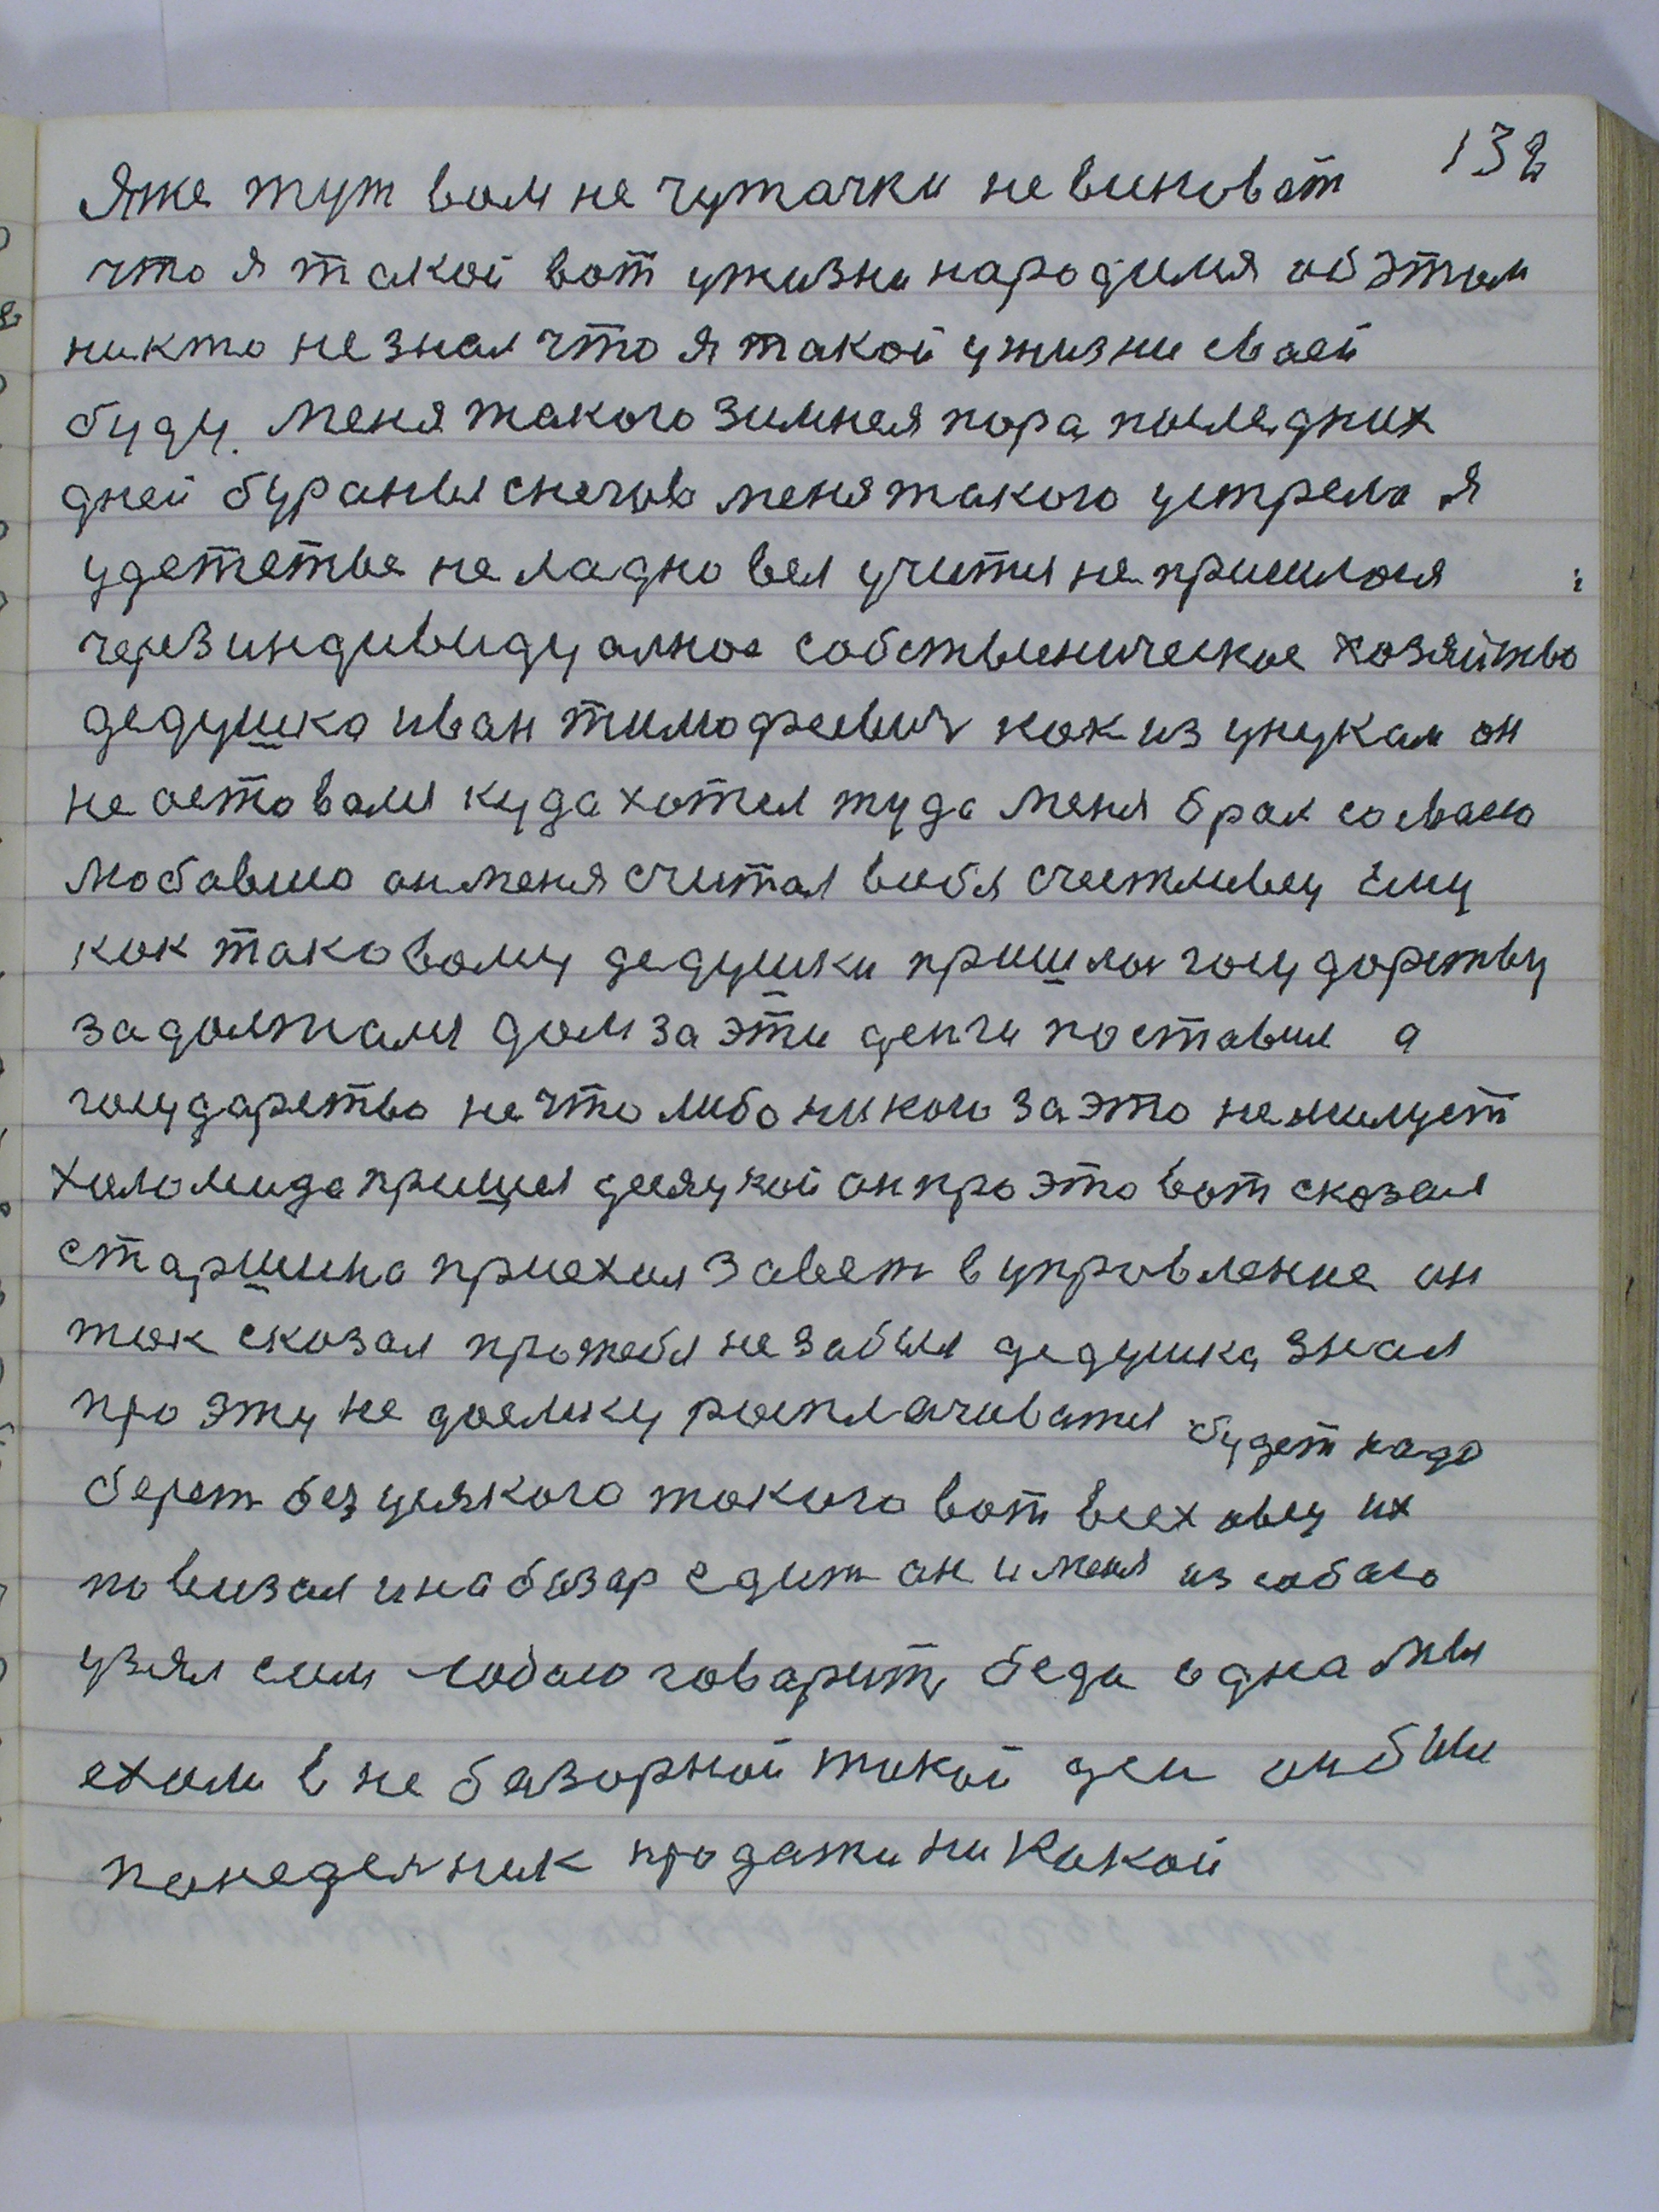 132
Яже тут вам не чутачки не виноват
что я такой вот ужизни народился об этом
никто не знал что я такой ужизни сваей
буду. Меня такого зимная пора последних
дней бураныя снегов меня такого устрела я
удететве не ладно вел учится не пришлося
через индивидуалное собственическое хозяйтво
дедушка иван тимофеевич как из унукам он
не оставался куда хотел туда меня брал со сваею
любовию он меня считал всебя счестливец ему
как таковому дедушки пришлос государству
задолжался дом за эти денги поставил а
государство не что либо никого за это немилует
халомида пришел десяцкой он про это вот сказал
старшина приехал завет в управление он
так сказал про тебя не забыл дедушка знал
про эту не доемку расплачиватся будет надо
берет без усякого такого вот всех овец их
повизал и на базар едит он и меня из собаю
узял сам собою говарит беда одна мы
ехали в не базарной такой ден он был
понеделник продажи ни какой